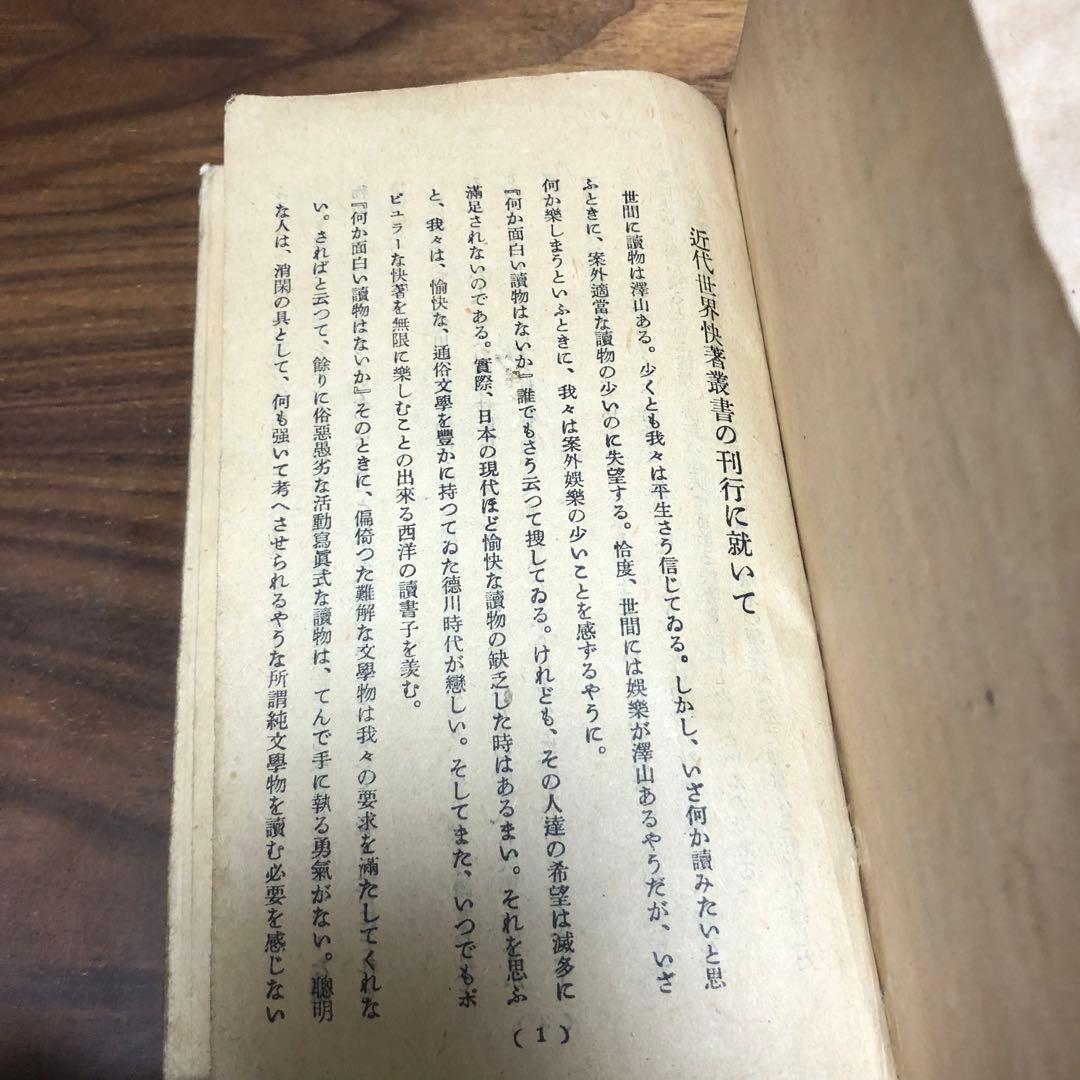 近代世界快著叢書の刊行に就いて
世間に讀物は澤山ある。少くとも我々は平生さう信じてゐる。しかし、いざ何か讀みたいと思
ふときに、案外適當な讀物の少いのに失望する。恰度、世間には娯樂が澤山あるやうだが、いざ
何か樂しまうといふときに、我々は案外娯樂の少いことを感ずるやうに。
『何か面白い讀物はないか』誰でもさう云つて搜してゐる。けれども、その人達の希望は滅多に
滿足されないのである。實際、日本の現代ほど愉快な讀物の缺乏した時はあるまい。それを思ふ
と、我々は、愉快な、通俗文學を豐かに持つてゐた德川時代が戀しい。そしてまた、いつでもポ
ピュラーな快著を無限に樂しむことの出來る西洋の讀書子を羡む。
『何か面白い讀物はないか』そのときに、偏倚つた難解な文學物は我々の要求を滿たしてくれな
い。さればと云つて、餘りに俗惡愚劣な活動寫眞式な讀物は、てんで手に執る勇氣がない。聰明
な人は、消閑の具として、何も强いて考へさせられるやうな所謂純文學物を讀む必要を感じない
(1)